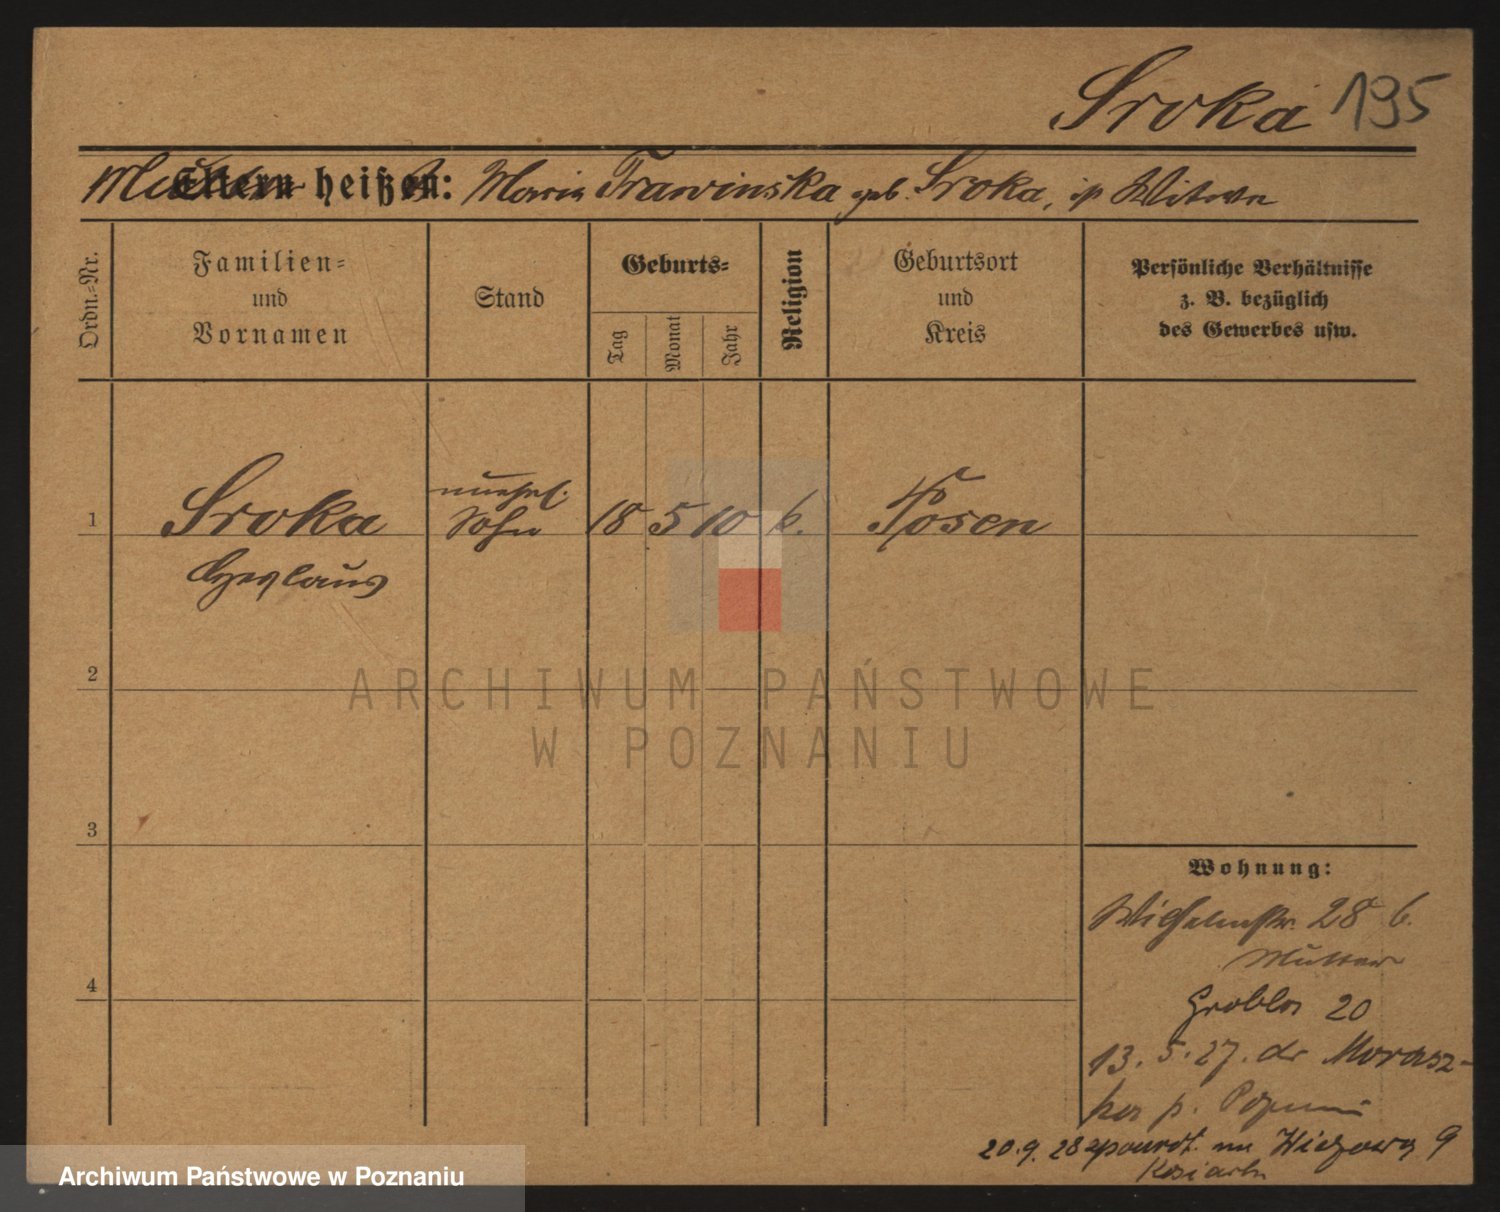 Sroka 195
Mutter Eltern heißen: Maria Trawinska geb. Sroka, ist Witwe
Ordn.-Nr.
Familien-
und
Vornamen
Stand
Geburts-
Tag
Monat
Jahr
Religion
Geburtsort
und
Kreis
Persönliche Verhältnisse
z. B. bezüglich
des Gewerbes usw.
unehel.
1 Sroka Sohn 18 5 10 k. Posen
Czeslaus
2
ARCHIWUM PAŃSTWOWE
W POZNANIU
3
Wohnung:
Wilhelmstr. 28 b.
Mutter
4
Grobla 20
13. 5. 27. do Morasz-
ka p. Poznań
20.9.28 z powrot. na Wieżową 9
Archiwum Państwowe w Poznaniu